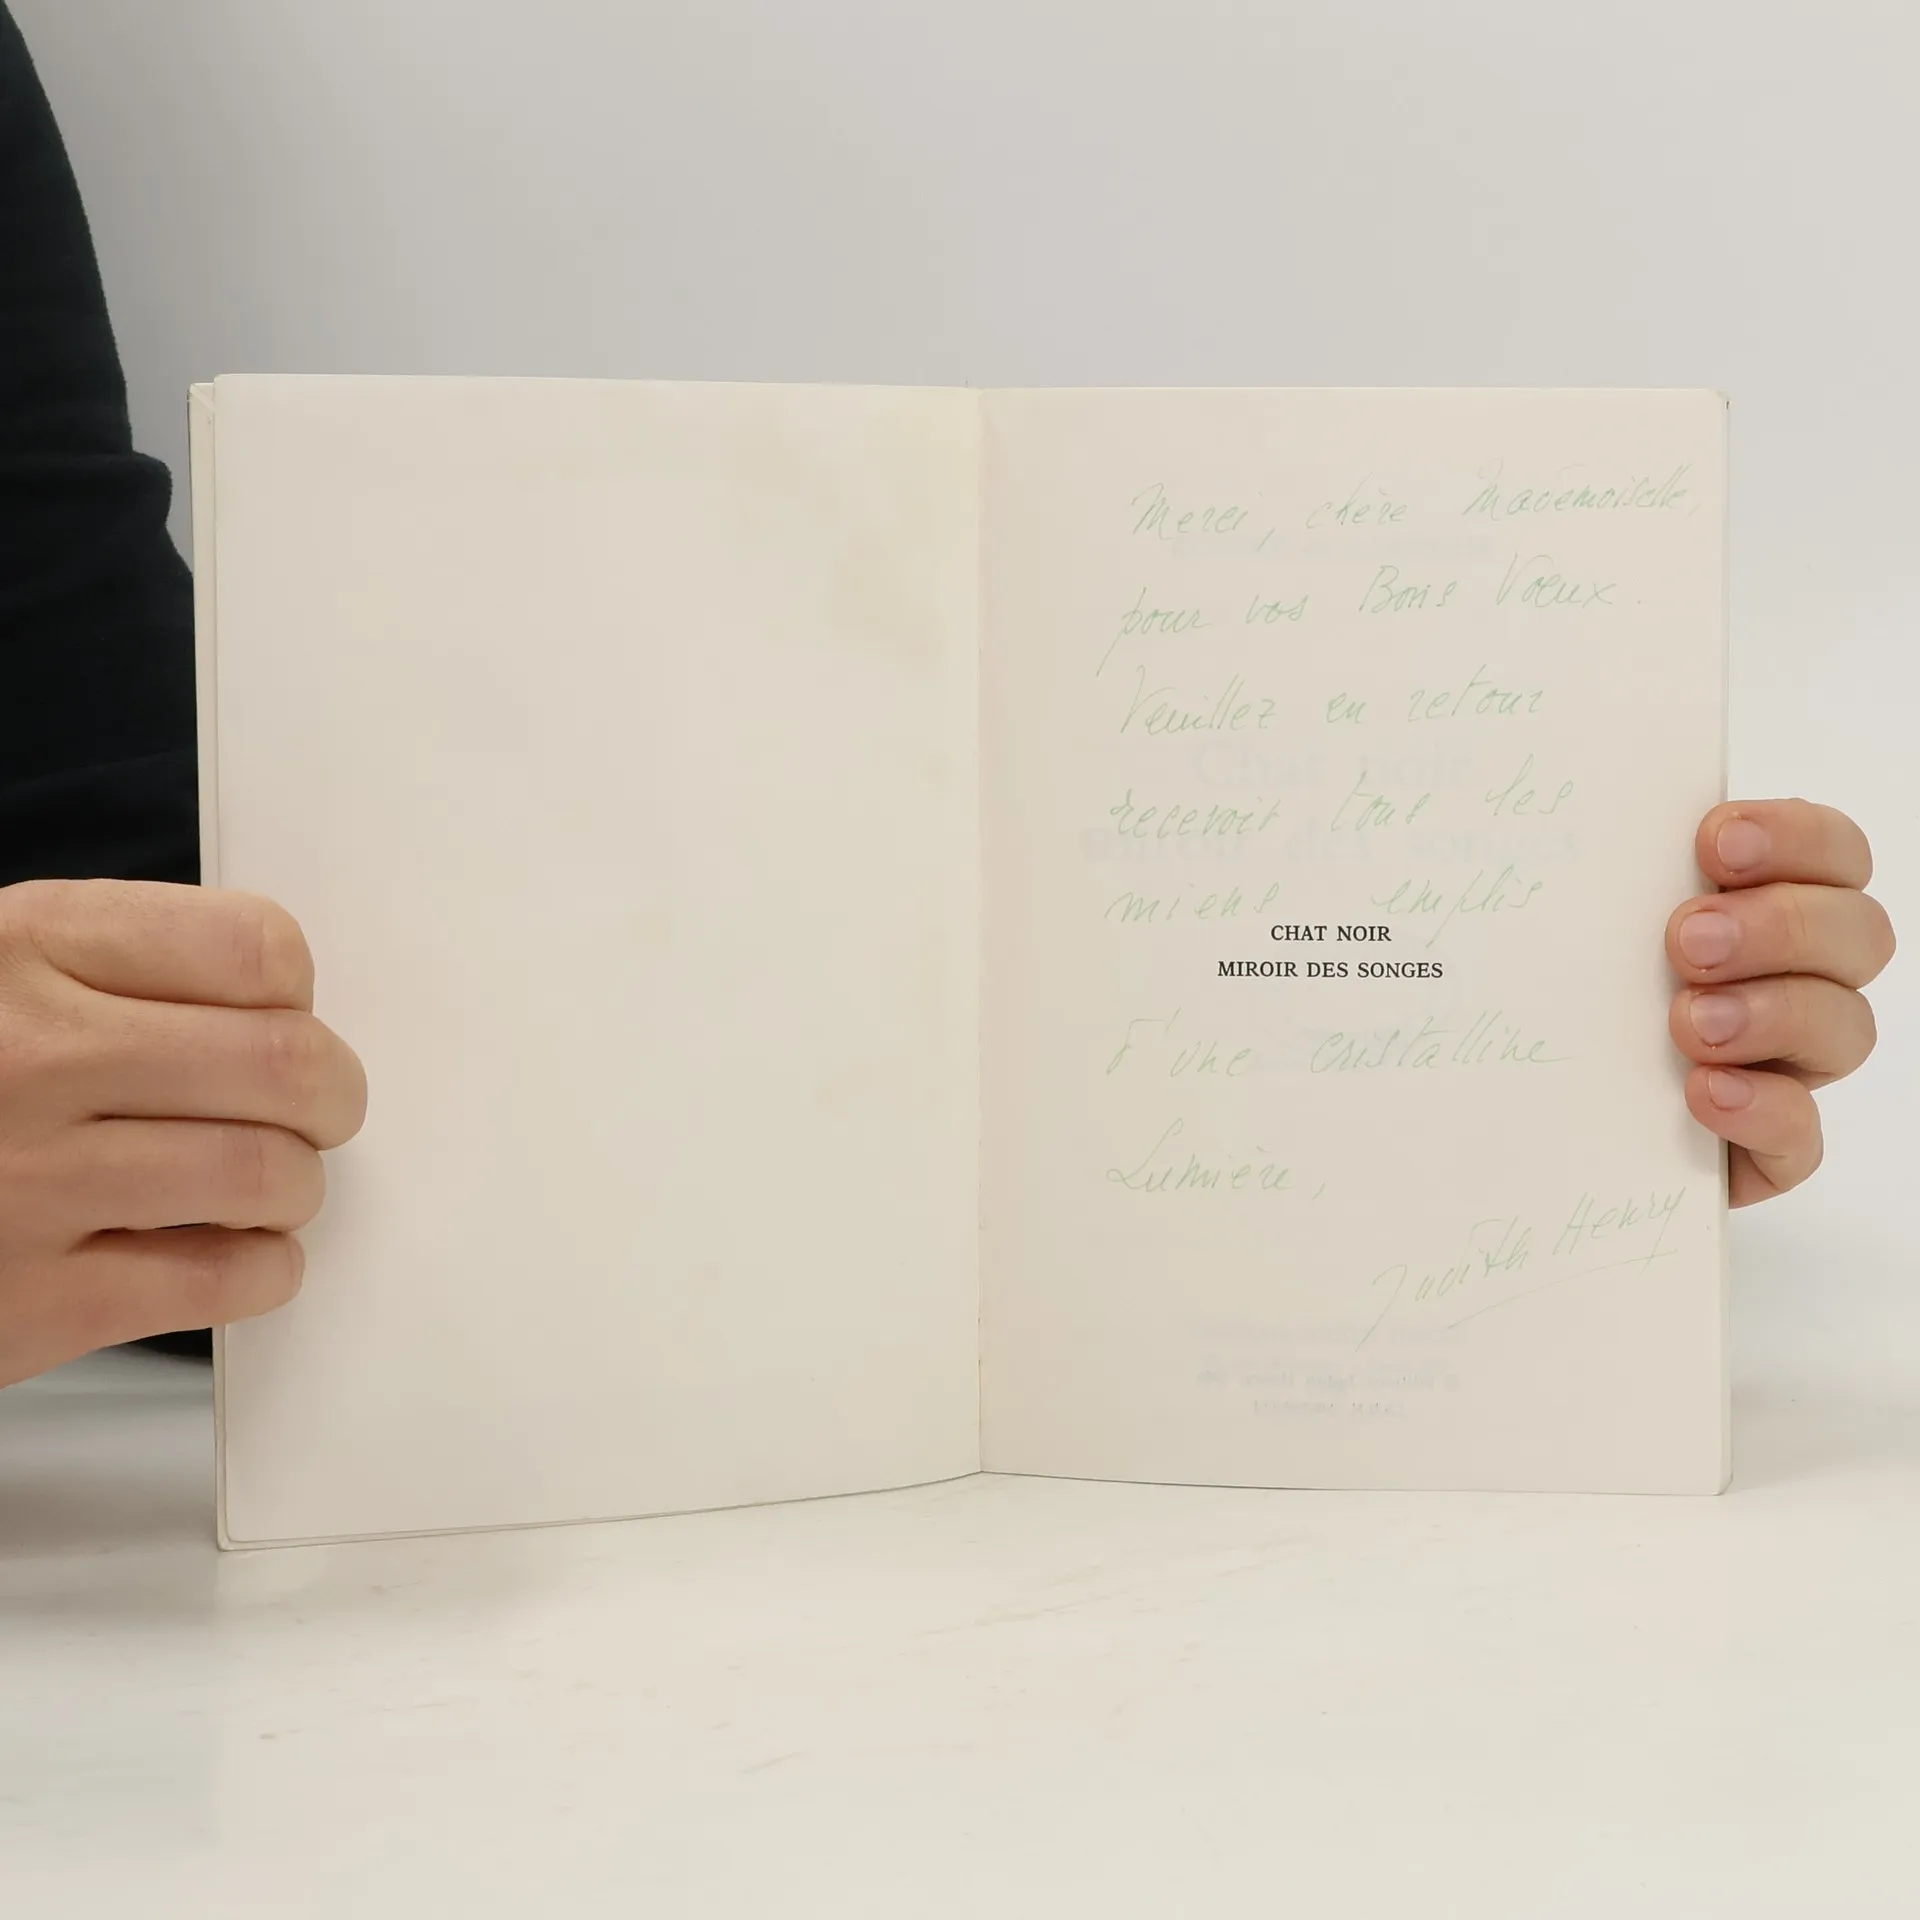 Merci, chère Mademoiselle,
pour vos Bons Vœux.
Veuillez en retour
recevoir tous les
miens emplis
CHAT NOIR
MIROIR DES SONGES
d'une cristalline
Lumière,
Judith Henry